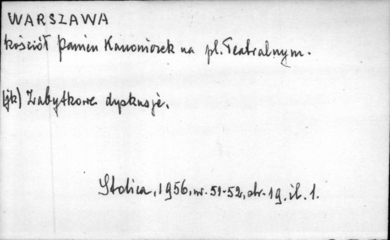 WARSZAWA
kościół Panien Kanoniczek na pl. Teatralnym.
(jk) Zabytkowe dyskusje.
Stolica, 1956, nr. 51-52, str. 19, il. 1.